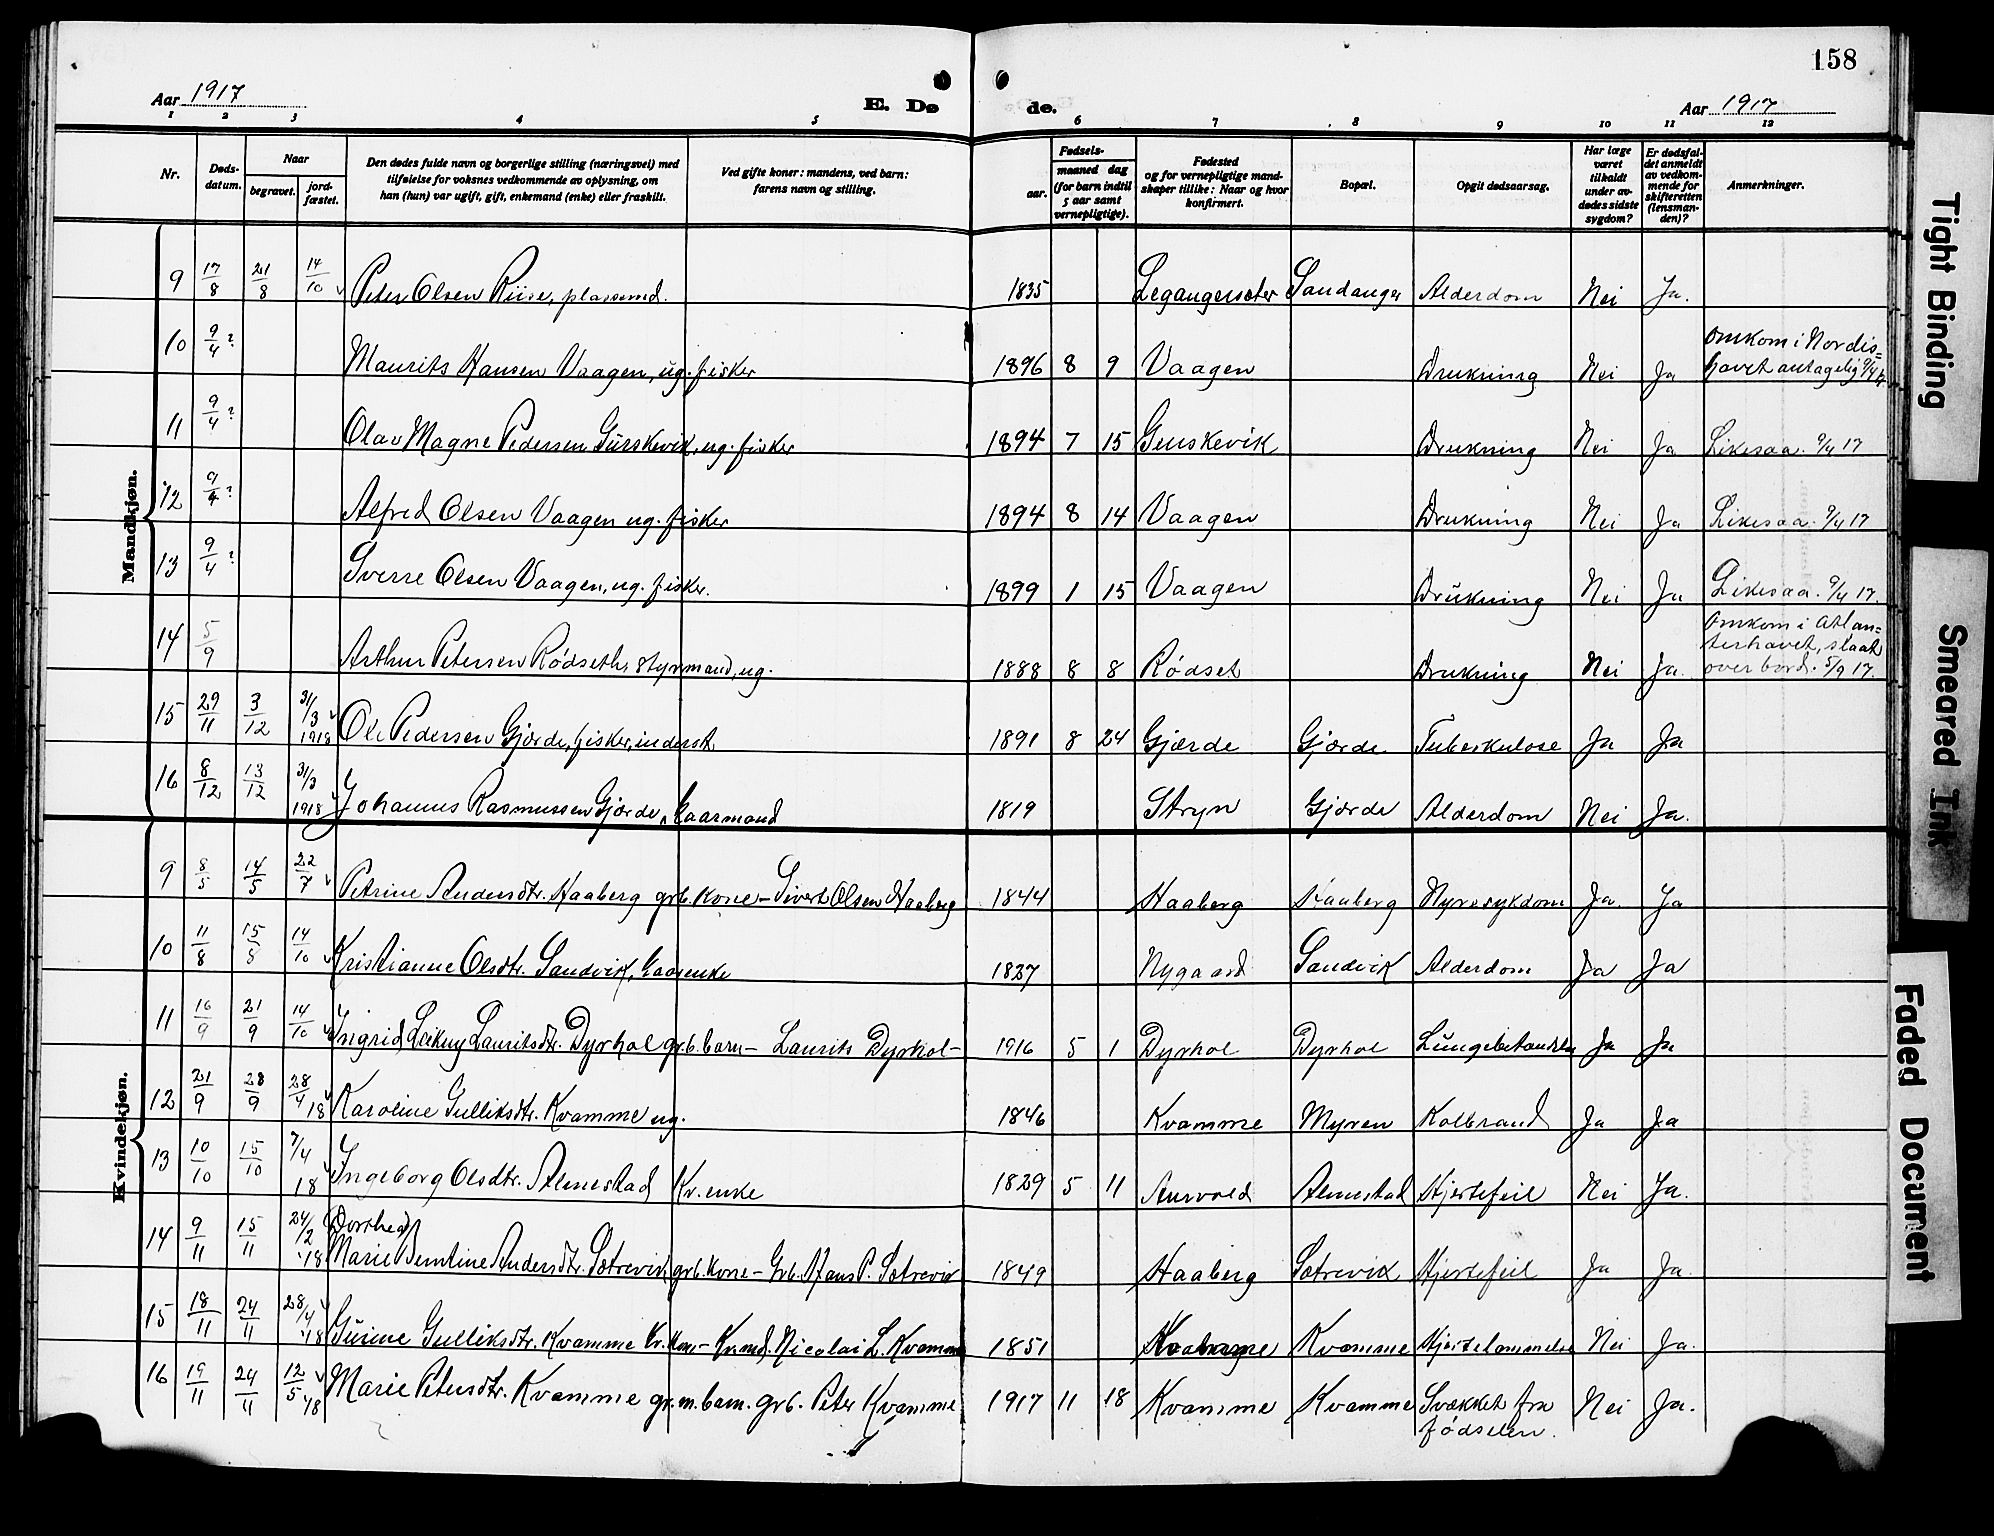 158
Aar 1917
E. Dø
de.
Aar 1917
1 2 3 4 5 6 7 8 9 10 11 12
Nr.
Døds-
datum.
Naar
begravet.
jord-
fæstet.
Den dødes fulde navn og borgerlige stilling (næringsvei) med
tilføielse for voksnes vedkommende av oplysning, om
han (hun) var ugift, gift, enkemand (enke) eller fraskilt.
Ved gifte koner: mandens, ved barn:
farens navn og stilling.
Fødsels-
aar.
maaned dag
(for barn indtil
5 aar samt
vernepligtige).
Fødested
og for vernepligtige mand-
skaper tillike: Naar og hvor
konfirmert.
Bopæl.
Opgit dødsaarsag.
Har læge
været
tilkaldt
under av-
dødes sidste
sygdom?
Er dødsfal-
det anmeldt
av vedkom-
mende for
skifteretten
(lensman-
den)?
Anmerkninger.
Mandkjøn.
9 17/8 21/8 14/10 Peter Olsen Riise, plassmd. 1835 Legangersæter Sandanger Alderdom Nei Ja.
10 9/4? Maurits Hansen Vaagen, ug. fisker 1896 8 9 Vaagen Drukning Nei Ja Omkom i Nordis=
havet antagelig 9/4 17
11 9/4? Olav Magne Pedersen Gurskevik, ug. fisker 1894 7 15 Gurskevik Drukning Nei Ja Likesaa. 9/4 17
12 9/4? Alfred Olsen Vaagen ug. fisker 1894 8 14 Vaagen Drukning Nei Ja Likesaa. 9/4 17
13 9/4? Sverre Olsen Vaagen, ug. fisker. 1899 1 15 Vaagen Drukning Nei Ja Likesaa. 9/4 17.
14 5/9 Arthur Petersen Rødseth, styrmand, ug. 1888 8 8 Rødset Drukning Nei Ja. Omkom i Atlan=
terhavet, slaat
over bord. 5/9 17.
15 29/11 3/12 31/3 1918 Ole Pedersen Gjærde, fisker, inderst 1891 8 24 Gjærde Gjærde Tuberkulose Ja Ja
16 8/12 13/12 31/3 1918 Johannes Rasmussen Gjærde, kaarmand 1819 Stryn Gjærde Alderdom Nei Ja.
Kvindekjøn.
9 8/5 14/5 22/7 Petrine Andersdtr. Haaberg grb. kone - Sivert Olsen Haaberg 1844 Haaberg Haaberg Nyresykdom Ja Ja
10 11/8 15/8 14/10 Kristianne Olsdtr. Sandvik, kaarenke 1827 Nygaard Sandvik Alderdom Ja Ja
11 16/9 21/9 14/10 Ingrid Lauritsdtr. Dyrhol gr.b. barn - Laurits Dyrhol - 1916 5 1 Dyrhol Dyrhol Ja Ja
12 21/9 28/9 28/4 18 Karoline Gulliksdtr. Kvamme ug. 1846 Kvamme Myren Kolbrand Ja Ja
13 10/10 15/10 7/4 18 Ingeborg Olsdtr. Almestad Kr. enke 1829 5 11 Aurvold Almestad Hjertefeil Nei Ja.
14 9/11 15/11 24/2 '18 (Dorthea)
Marie Berntine Andersdtr. Sætrevik, grb. kone - Grb. Hans P. Sætrevik 1849 Haaberg Sætrevik Hjertefeil Ja Ja.
15 18/11 24/11 28/4 '18 Gurine Gulliksdtr. Kvamme kr. kone - Kr.md. Nicolai L. Kvamme 1851 Kvamme Kvamme Hjertelammelse Nei Ja.
16 19/11 24/11 12/5 '18 Marie Petersdtr. Kvamme gr.m. barn. grb. Peter Kvamme 1917 11 18 Kvamme Kvamme Svækket fra
fødselen. Nei Ja.
Tight Binding
Smeared Ink
Faded Document